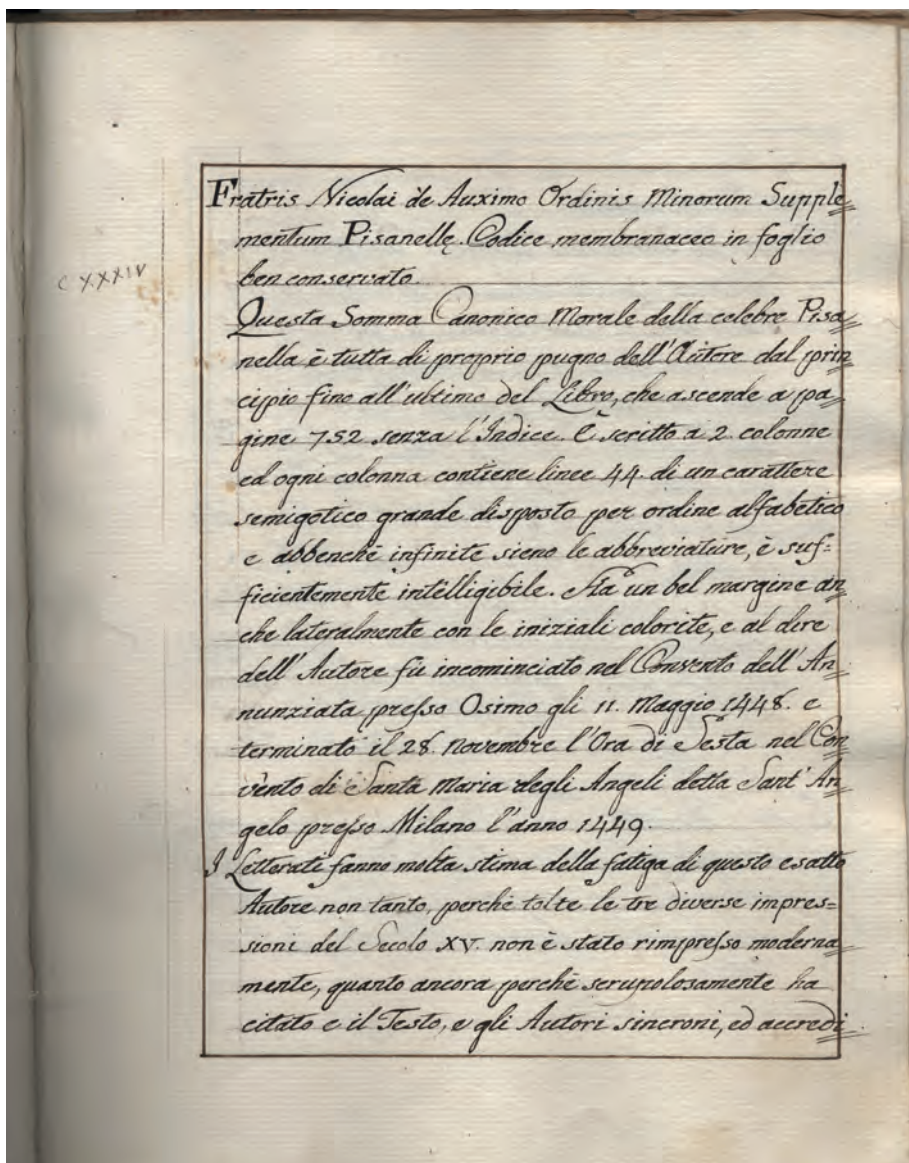 Fratris Nicolai de Auximo Ordinis Minorum Supple=
mentum Pisanellę. Codice membranaceo in foglio
C XXXIV
ben conservato.
Questa Somma Canonico Morale della celebre Pisa=
nella è tutta di proprio pugno dell'Autore dal prin=
cipio fino all'ultimo del Libro, che ascende a pa=
gine 752 senza l'Indice. E scritto a 2. colonne
ed ogni colonna contiene linee 44. di un carattere
semigotico grande disposto per ordine alfabetico
e abbenchè infinite sieno le abbreviature, è suf=
ficientemente intelligibile. Ha un bel margine an=
che lateralmente con le iniziali colorite, e al dire
dell'Autore fù incominciato nel Convento dell'An=
nunziata presso Osimo gli 11. Maggio 1448. e
terminato il 28. Novembre l'Ora di Sesta nel Con=
vento di Santa Maria degli Angeli detta Sant'An=
gelo presso Milano l'anno 1449.
I Letterati fanno molta stima della fatiga di questo esatto
Autore non tanto, perchè tolte le tre diverse impres=
sioni del Secolo XV. non è stato rimpresso moderna=
mente, quanto ancora perchè scrupolosamente ha
citato e il Testo, e gli Autori sincroni, ed accredi=